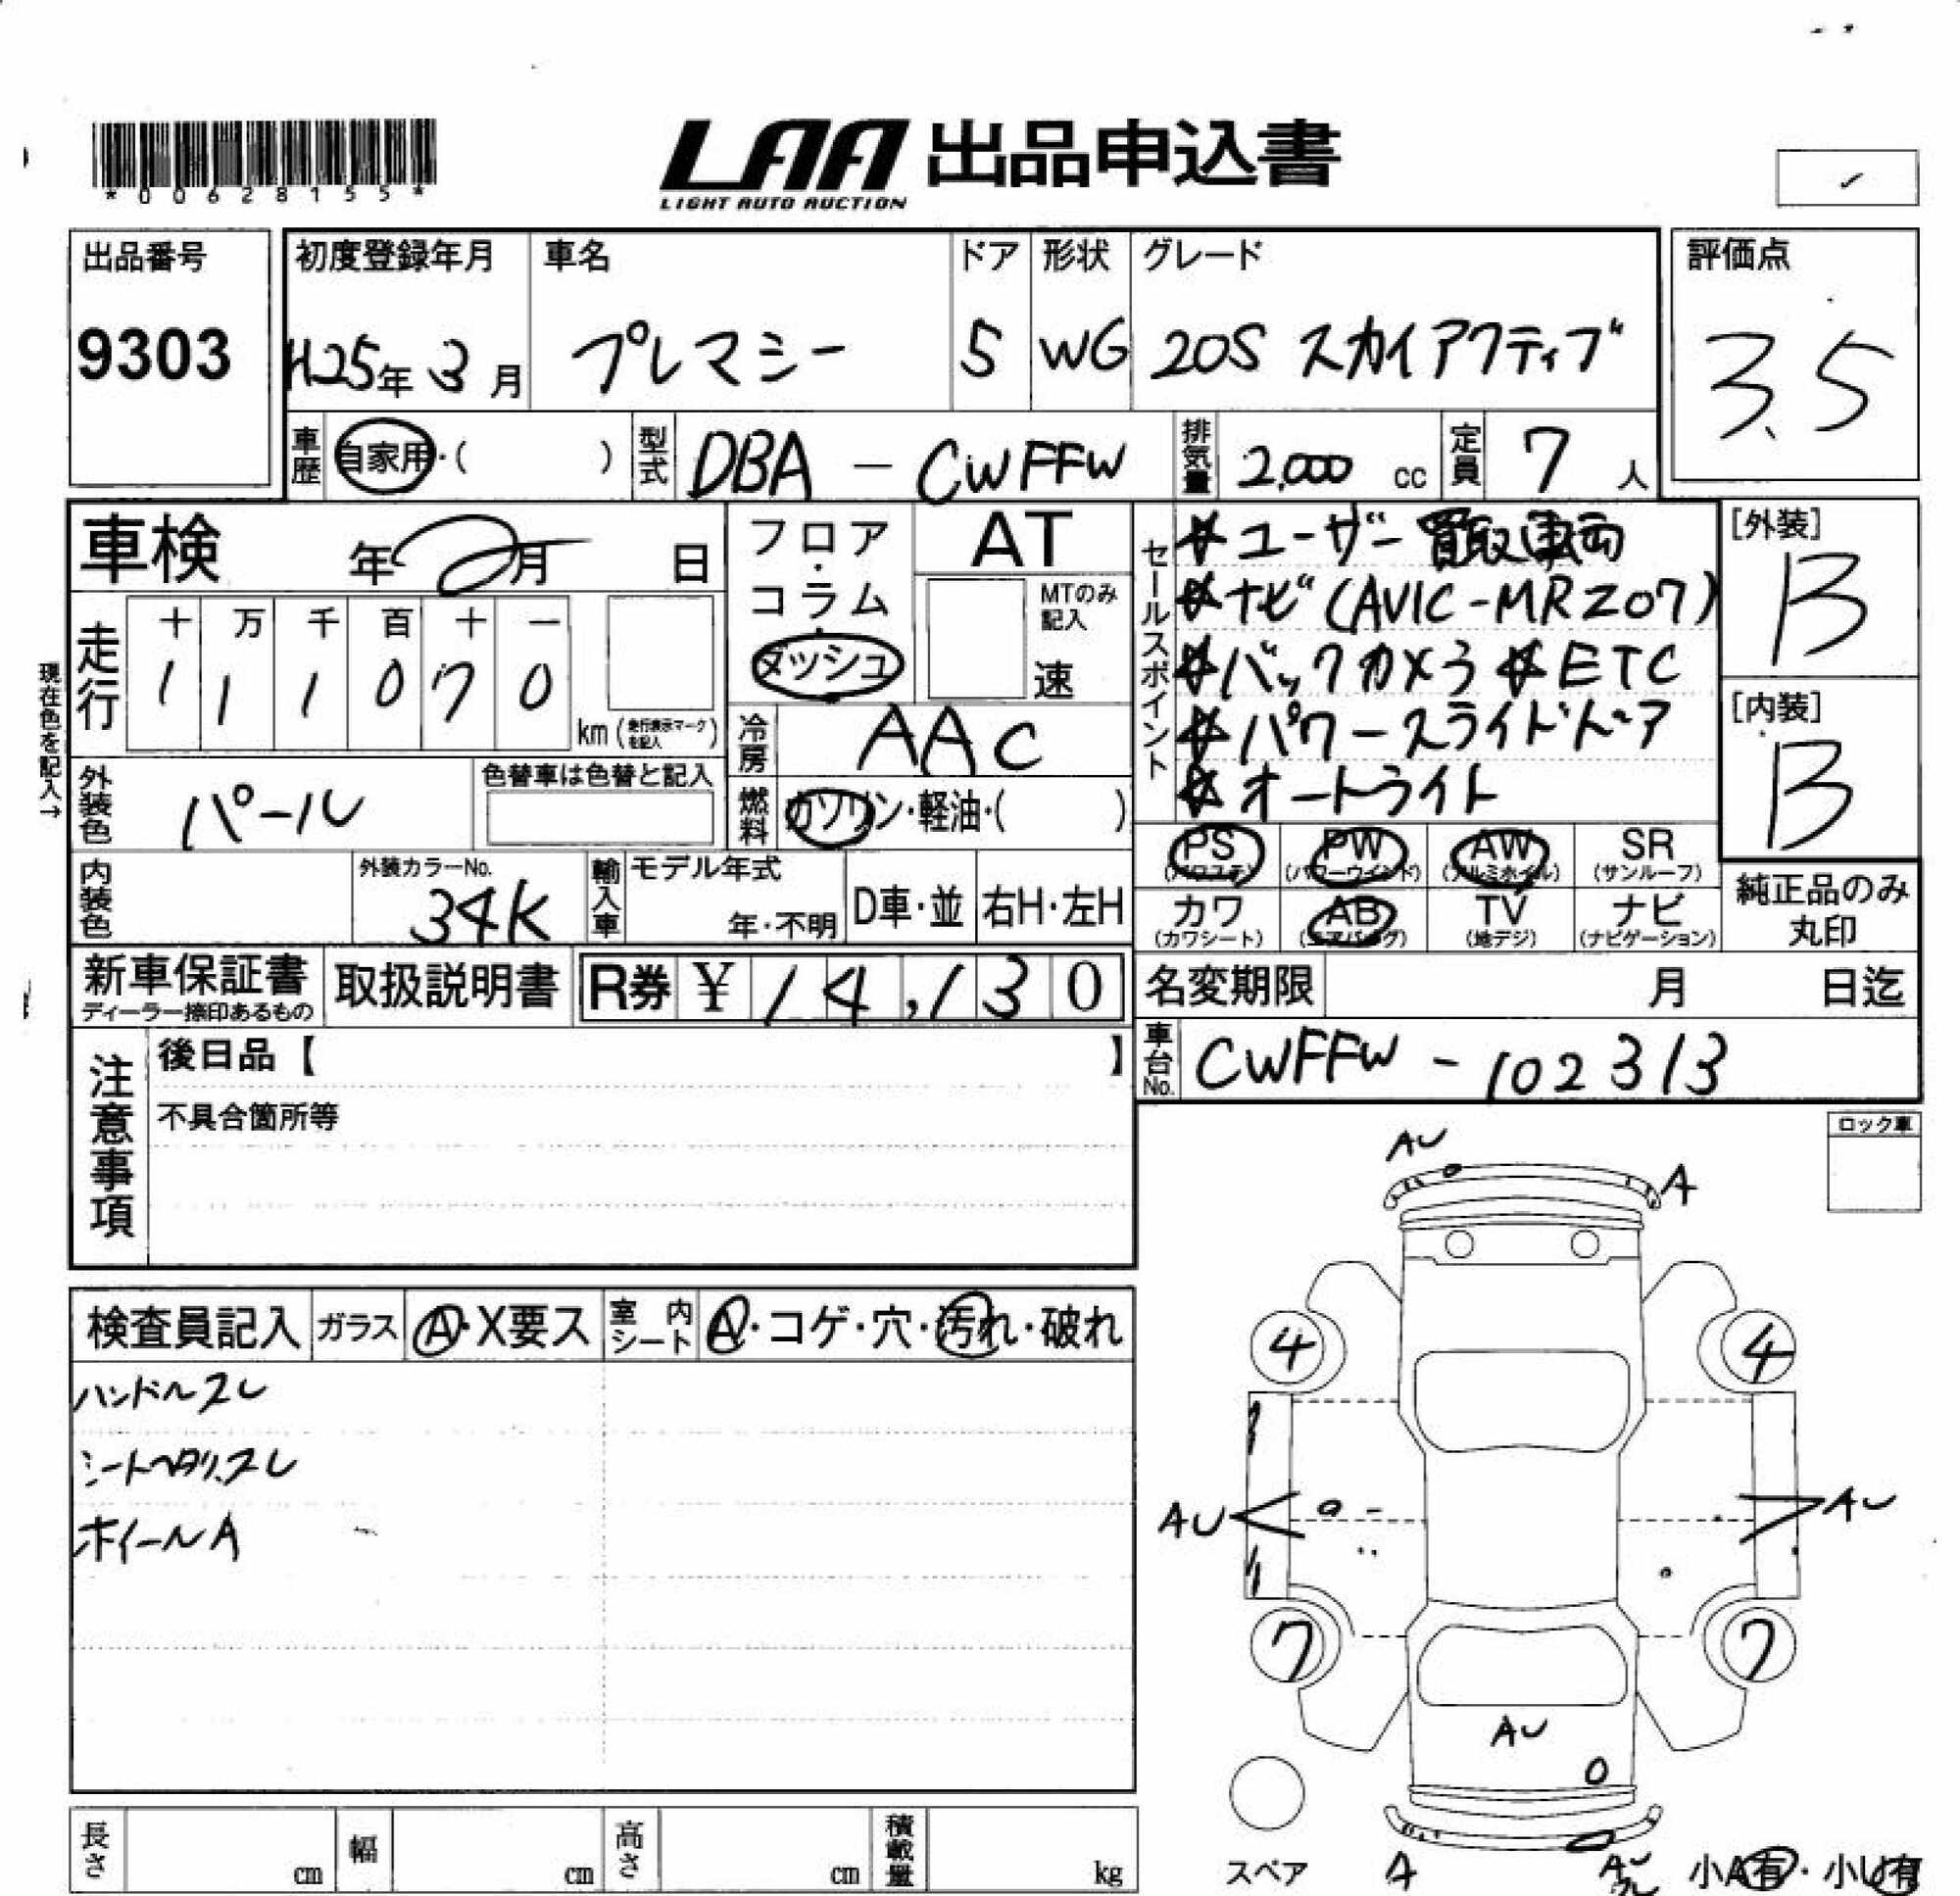 *00628155*
LAA 出品申込書
LIGHT AUTO AUCTION
出品番号
9303
初度登録年月
H25年3月
車名
プレマシー
ドア
5
形状
WG
グレード
20S スカイアクティブ
評価点
3.5
車歴
自家用・( )
型式
DBA - CWFFW
排気量
2,000 cc
定員
7 人
車検 年 月 日
走行
十 万 千 百 十 一
1 1 1 0 7 0
km (走行表示マークを記入)
現在色を記入→
フロア・コラム・ダッシュ
AT
MTのみ記入
速
冷房
AAC
燃料
ガソリン・軽油・( )
外装色
パール
色替車は色替と記入
内装色
外装カラーNo.
34K
輸入車
モデル年式
年・不明
D車・並
右H・左H
セールスポイント
☆ユーザー買取車両
☆ナビ(AVIC-MRZ07)
☆バックカメラ ☆ETC
☆パワースライドドア
☆オートライト
[外装]
B
[内装]
B
PS (パワステ)
PW (パワーウインド)
AW (アルミホイル)
SR (サンルーフ)
カワ (カワシート)
AB (エアバッグ)
TV (地デジ)
ナビ (ナビゲーション)
純正品のみ
丸印
新車保証書
ディーラー捺印あるもの
取扱説明書
R券 ¥14,130
名変期限 月 日迄
車台No.
CWFFW - 102313
注意事項
後日品【 】
不具合箇所等
ロック車
検査員記入
ガラス
A・X要ス
室内シート
A・コゲ・穴・汚れ・破れ
ハンドルスレ
シートヘタリ、スレ
ホイールA
AU
A
4
4
AU
AU
7
7
AU
スペア
A
AU
小A有・小U有
長さ cm
幅 cm
高さ cm
積載量 kg